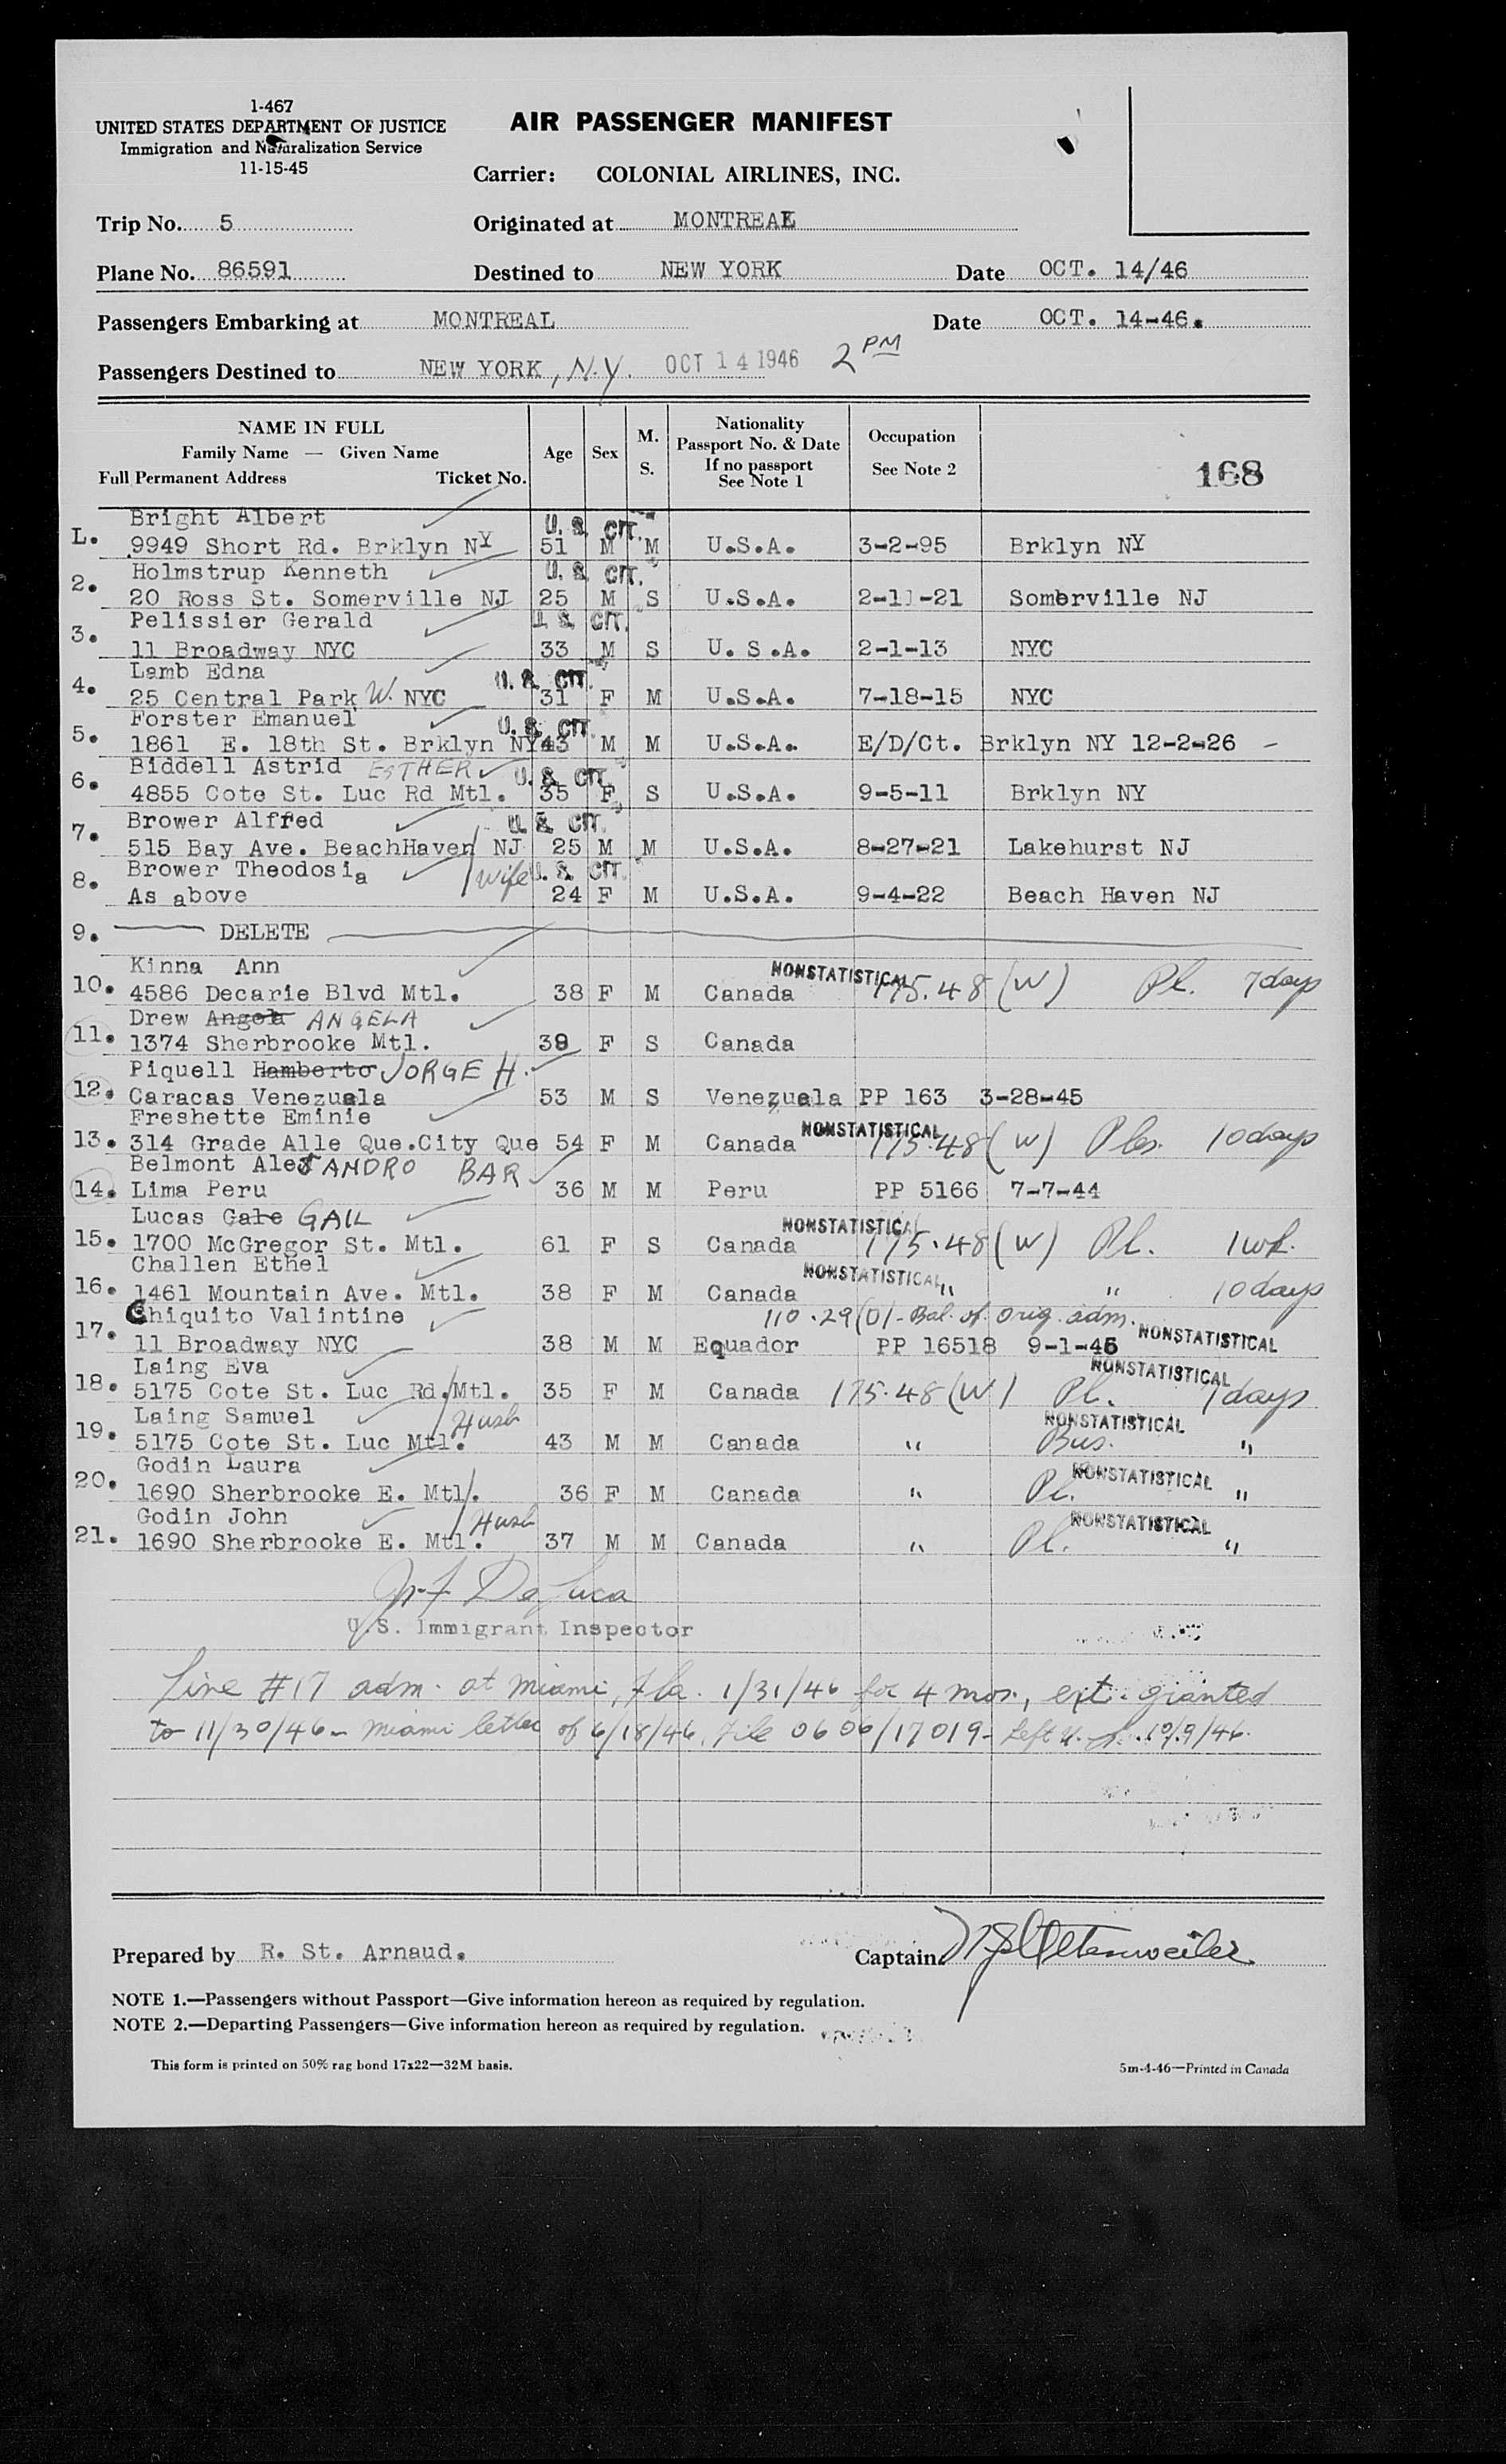 1-467
UNITED STATES DEPARTMENT OF JUSTICE
Immigration and Naturalization Service
11-15-45
AIR PASSENGER MANIFEST
Carrier: COLONIAL AIRLINES, INC.
Trip No. 5 Originated at MONTREAL
Plane No. 86591 Destined to NEW YORK Date OCT. 14/46
Passengers Embarking at MONTREAL Date OCT. 14-46.
Passengers Destined to NEW YORK, N.Y. OCT 14 1946 2 PM
NAME IN FULL
Family Name — Given Name
Full Permanent Address Ticket No.
Age Sex M. S.
Nationality
Passport No. & Date
If no passport
See Note 1
Occupation
See Note 2
168
Bright Albert U. S. CIT.
L. 9949 Short Rd. Brklyn NY 51 M M U.S.A. 3-2-95 Brklyn NY
Holmstrup Kenneth U. S. CIT.
2. 20 Ross St. Somerville NJ 25 M S U.S.A. 2-11-21 Somerville NJ
Pelissier Gerald U. S. CIT.
3. 11 Broadway NYC 33 M S U. S .A. 2-1-13 NYC
Lamb Edna U. S. CIT.
4. 25 Central Park W. NYC 31 F M U.S.A. 7-18-15 NYC
Forster Emanuel U. S. CIT.
5. 1861 E. 18th St. Brklyn NY 43 M M U.S.A. E/D/Ct. Brklyn NY 12-2-26 -
Biddell Astrid ESTHER U. S. CIT.
6. 4855 Cote St. Luc Rd Mtl. 35 F S U.S.A. 9-5-11 Brklyn NY
Brower Alfred U. S. CIT.
7. 515 Bay Ave. BeachHaven NJ 25 M M U.S.A. 8-27-21 Lakehurst NJ
Brower Theodosia wife U. S. CIT.
8. As above 24 F M U.S.A. 9-4-22 Beach Haven NJ
9. DELETE
Kinna Ann NONSTATISTICAL
10. 4586 Decarie Blvd Mtl. 38 F M Canada 175.48 (W) Pl. 7 days
Drew Angola ANGELA
11. 1374 Sherbrooke Mtl. 38 F S Canada
Piquell Hamberto JORGE H.
12. Caracas Venezuala 53 M S Venezuala PP 163 3-28-45
Freshette Eminie NONSTATISTICAL
13. 314 Grade Alle Que.City Que 54 F M Canada 175.48 (W) Ples. 10 days
Belmont AleJANDRO BAR
14. Lima Peru 36 M M Peru PP 5166 7-7-44
Lucas Gale GAIL NONSTATISTICAL
15. 1700 McGregor St. Mtl. 61 F S Canada 175.48 (W) Pl. 1 wk.
Challen Ethel NONSTATISTICAL
16. 1461 Mountain Ave. Mtl. 38 F M Canada " " 10 days
Chiquito Valintine 110.29(D)- Bal. of orig. adm. NONSTATISTICAL
17. 11 Broadway NYC 38 M M Equador PP 16518 9-1-45
Laing Eva NONSTATISTICAL
18. 5175 Cote St. Luc Rd. Mtl. 35 F M Canada 175.48 (W) Pl. 7 days
Laing Samuel Husb NONSTATISTICAL
19. 5175 Cote St. Luc Mtl. 43 M M Canada " Bus. "
Godin Laura NONSTATISTICAL
20. 1690 Sherbrooke E. Mtl. 36 F M Canada " Pl. "
Godin John Husb NONSTATISTICAL
21. 1690 Sherbrooke E. Mtl. 37 M M Canada " Pl. "
De Luca
U.S. Immigrant Inspector
Line #17 adm. at Miami, Fla. 1/31/46 for 4 mos., ext. granted
to 11/30/46 - Miami letter of 6/18/46, File 0606/17019 - Left U. S. 10/9/46.
Prepared by R. St. Arnaud. Captain
NOTE 1.—Passengers without Passport—Give information hereon as required by regulation.
NOTE 2.—Departing Passengers—Give information hereon as required by regulation.
This form is printed on 50% rag bond 17x22—32M basis. 5m-4-46—Printed in Canada